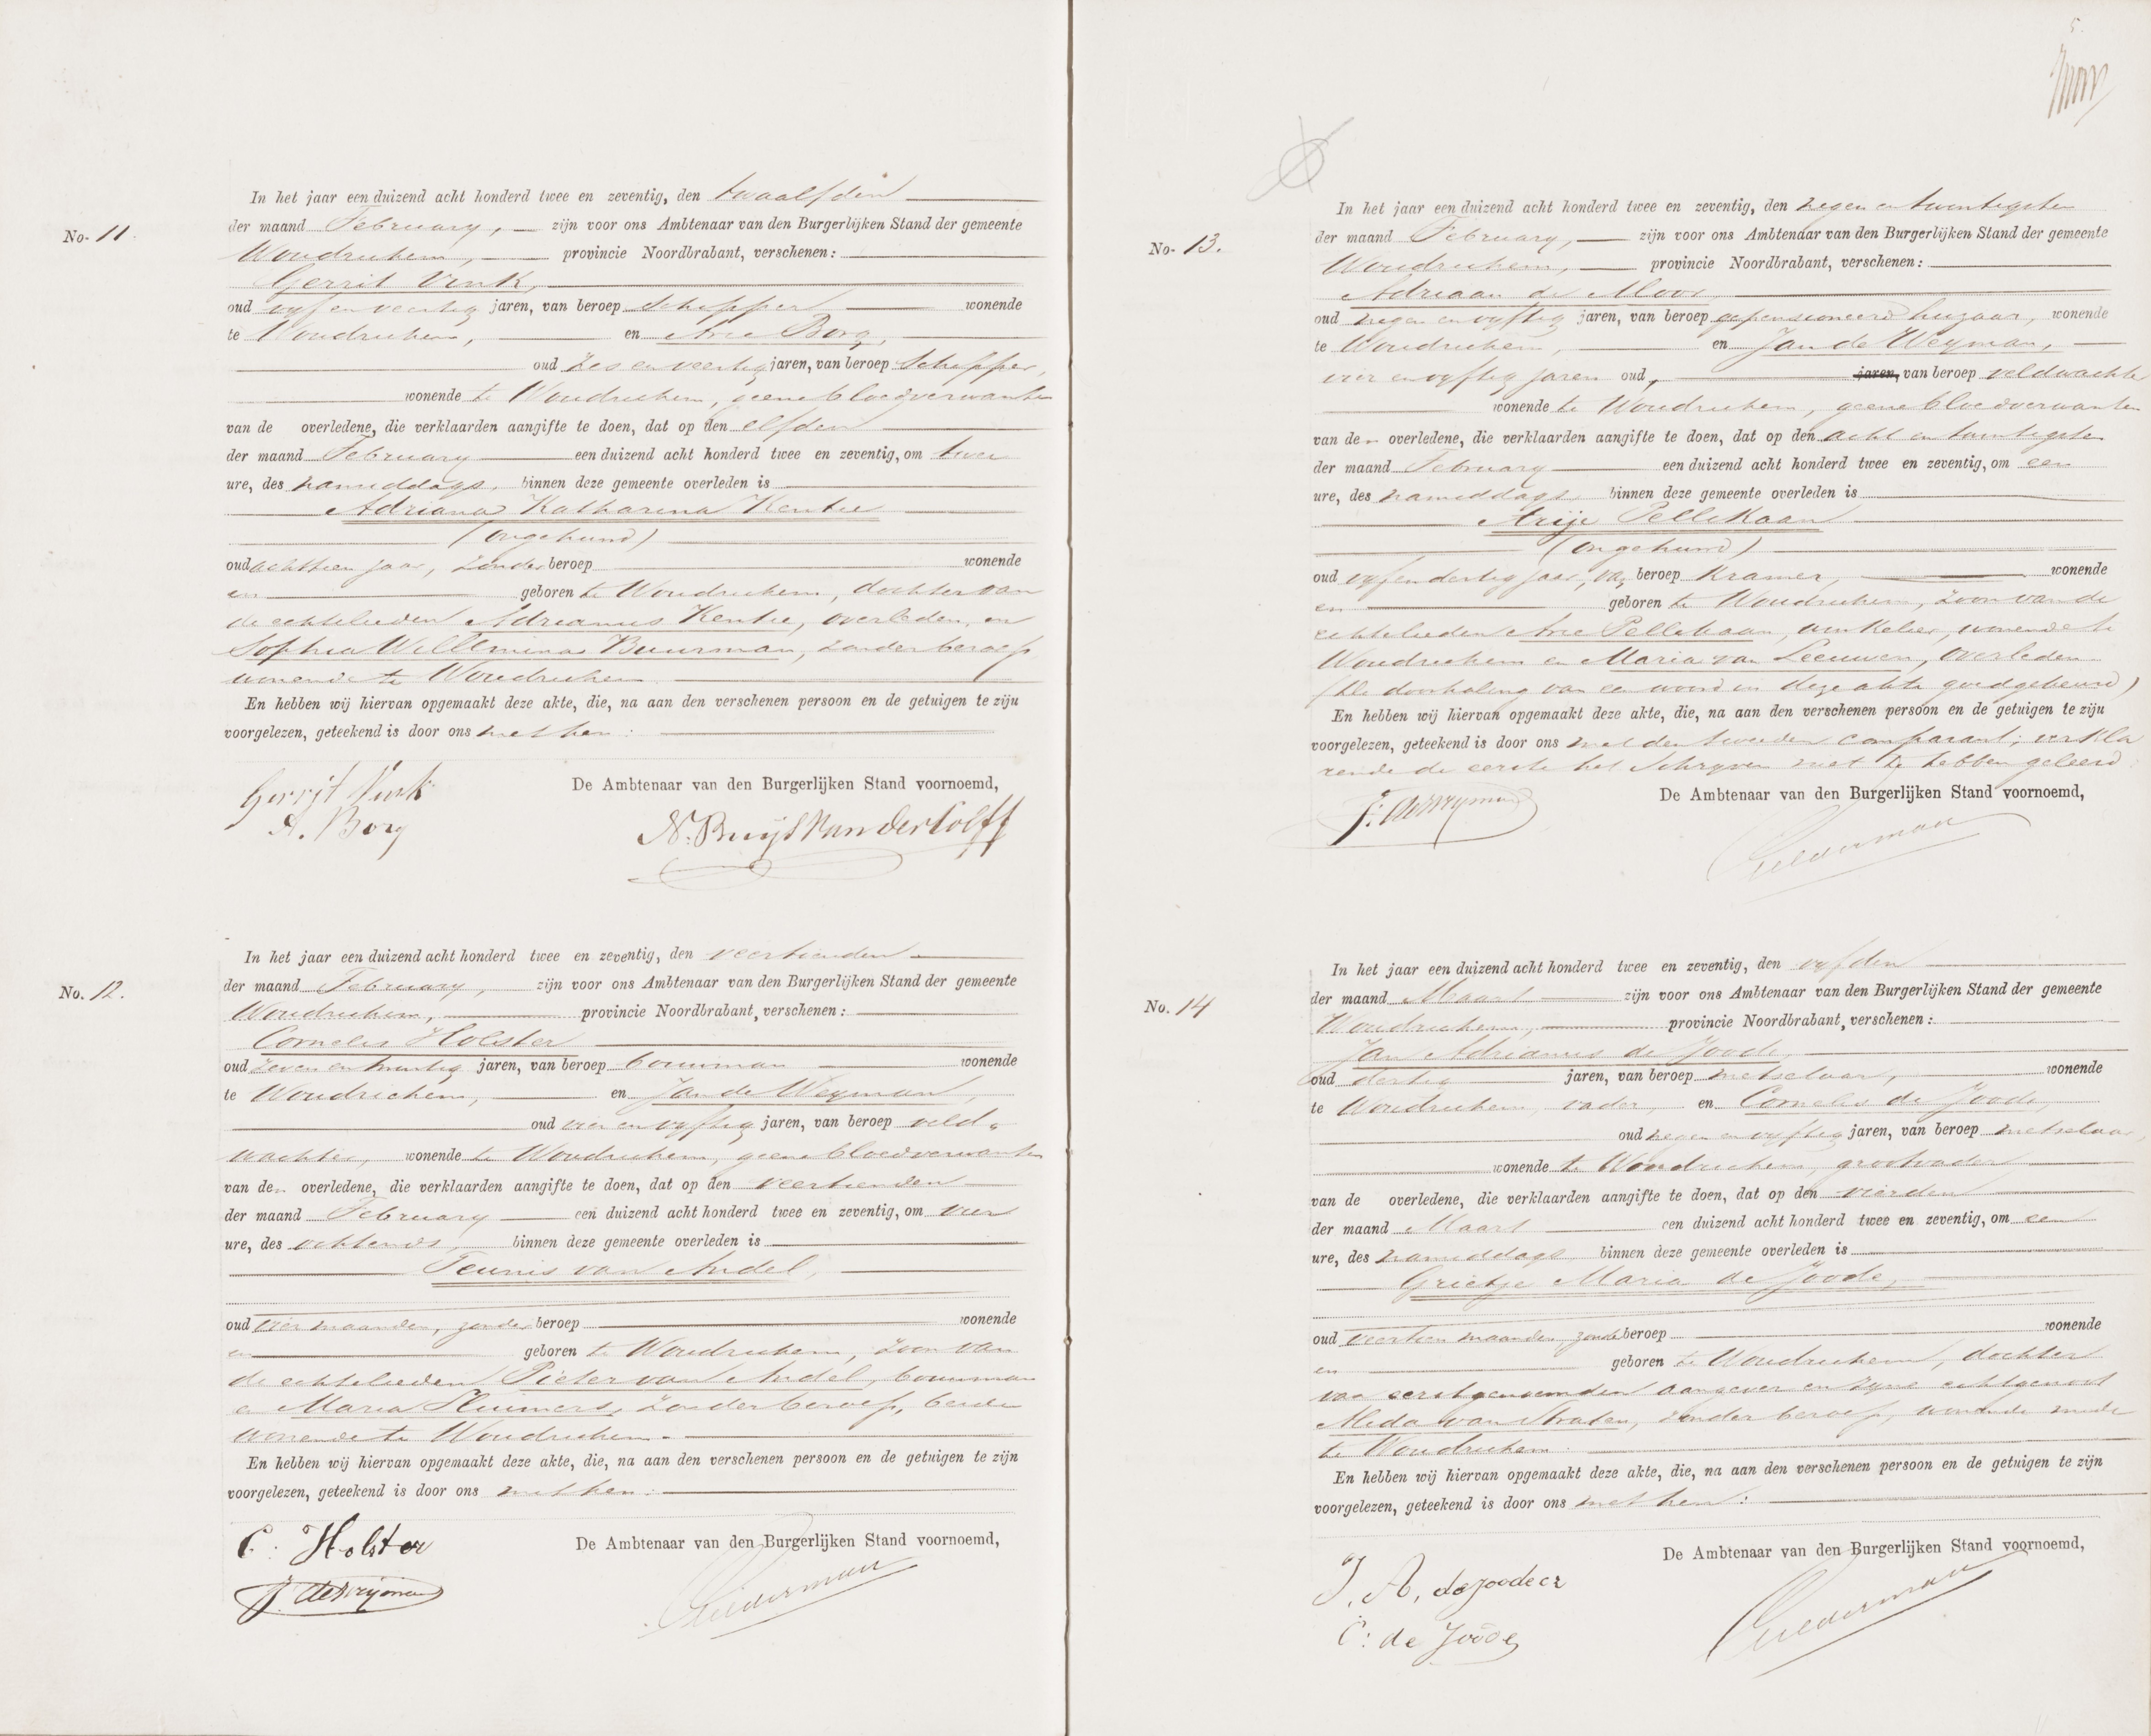 No. 11.
In het jaar een duizend acht honderd twee en zeventig, den twaalfden
der maand February, zijn voor ons Ambtenaar van den Burgerlijken Stand der gemeente
Woudrichem, provincie Noordbrabant, verschenen:
Gerrit Vink,
oud vyf en veertig jaren, van beroep Schipper wonende
te Woudrichem, en Arie Borg,
oud zes en veertig jaren, van beroep Schipper,
wonende te Woudrichem, geene bloedverwanten
van de overledene, die verklaarden aangifte te doen, dat op den elfden
der maand February een duizend acht honderd twee en zeventig, om twee
ure, des namiddags, binnen deze gemeente overleden is
Adriana Katharina Kentie
(ongehuwd)
oud achttien jaar, zonder beroep wonende
en geboren te Woudrichem, dochter van
de echtelieden Adrianus Kentie, overleden, en
Sophia Willemina Buurman, zonder beroep
wonende te Woudrichem
En hebben wij hiervan opgemaakt deze akte, die, na aan den verschenen persoon en de getuigen te zijn
voorgelezen, geteekend is door ons met hen:
Gerrit Vink
A. Borg
De Ambtenaar van den Burgerlijken Stand voornoemd,
N. Buijs van der Colff
No. 12.
In het jaar een duizend acht honderd twee en zeventig, den veertienden
der maand February, zijn voor ons Ambtenaar van den Burgerlijken Stand der gemeente
Woudrichem, provincie Noordbrabant, verschenen:
Cornelis Holster
oud zeven en twintig jaren, van beroep bouwman wonende
te Woudrichem, en Jan de Weyman,
oud vier en vyftig jaren, van beroep veld-
wachter, wonende te Woudrichem, geene bloedverwanten
van den overledene, die verklaarden aangifte te doen, dat op den veertienden
der maand February een duizend acht honderd twee en zeventig, om vier
ure, des ochtends, binnen deze gemeente overleden is
Teunis van Andel,
oud vier maanden, zonder beroep wonende
en geboren te Woudrichem, zoon van
de echtelieden Pieter van Andel, bouwman
en Maria Huimers, zonder beroep, beide
wonende te Woudrichem.
En hebben wij hiervan opgemaakt deze akte, die, na aan den verschenen persoon en de getuigen te zijn
voorgelezen, geteekend is door ons met hen:
C. Holster
J. deWeijman
De Ambtenaar van den Burgerlijken Stand voornoemd,
Gelderman
5.
No. 13.
In het jaar een duizend acht honderd twee en zeventig, den negen en twintigsten
der maand February, zijn voor ons Ambtenaar van den Burgerlijken Stand der gemeente
Woudrichem, provincie Noordbrabant, verschenen:
Adriaan de Moor
oud negen en vyftig jaren, van beroep gepensioneerd huzaar, wonende
te Woudrichem, en Jan de Weyman,
vier en vyftig jaren oud, jaren, van beroep veldwachter
wonende te Woudrichem, geene bloedverwanten
van den overledene, die verklaarden aangifte te doen, dat op den acht en twintigsten
der maand February een duizend acht honderd twee en zeventig, om een
ure, des namiddags binnen deze gemeente overleden is
Arije Pellekaan
(ongehuwd)
oud vyf en dertig jaar, van beroep Kramer, wonende
en geboren te Woudrichem, zoon van de
echtelieden Arie Pellekaan, winkelier, wonende te
Woudrichem en Maria van Leeuwen, overleden
(De doorhaling van een woord in deze akte goedgekeurd)
En hebben wij hiervan opgemaakt deze akte, die, na aan den verschenen persoon en de getuigen te zijn
voorgelezen, geteekend is door ons met den tweeden comparant; verkla
rende de eerste het Schryven niet te hebben geleerd
J. deWeijman
De Ambtenaar van den Burgerlijken Stand voornoemd,
Gelderman
No. 14
In het jaar een duizend acht honderd twee en zeventig, den vyfden
der maand Maart zijn voor ons Ambtenaar van den Burgerlijken Stand der gemeente
Woudrichem, provincie Noordbrabant, verschenen:
Jan Adrianus de Joode,
oud dertig jaren, van beroep metselaar, wonende
te Woudrichem, vader, en Cornelis de Joode,
oud negen en vyftig jaren, van beroep metselaar,
wonende te Woudrichem, grootvader
van de overledene, die verklaarden aangifte te doen, dat op den vierden
der maand Maart een duizend acht honderd twee en zeventig, om een
ure, des namiddags binnen deze gemeente overleden is
Grietje Maria de Joode,
oud veertien maanden, zonder beroep wonende
en geboren te Woudrichem, dochter
van eerstgenoemden aangever en zyne echtgenoot
Alida van Straten, zonder beroep, wonende mede
te Woudrichem
En hebben wij hiervan opgemaakt deze akte, die, na aan den verschenen persoon en de getuigen te zijn
voorgelezen, geteekend is door ons met hen:
J. A. de joode
C: de Joode
De Ambtenaar van den Burgerlijken Stand voornoemd,
Gelderman